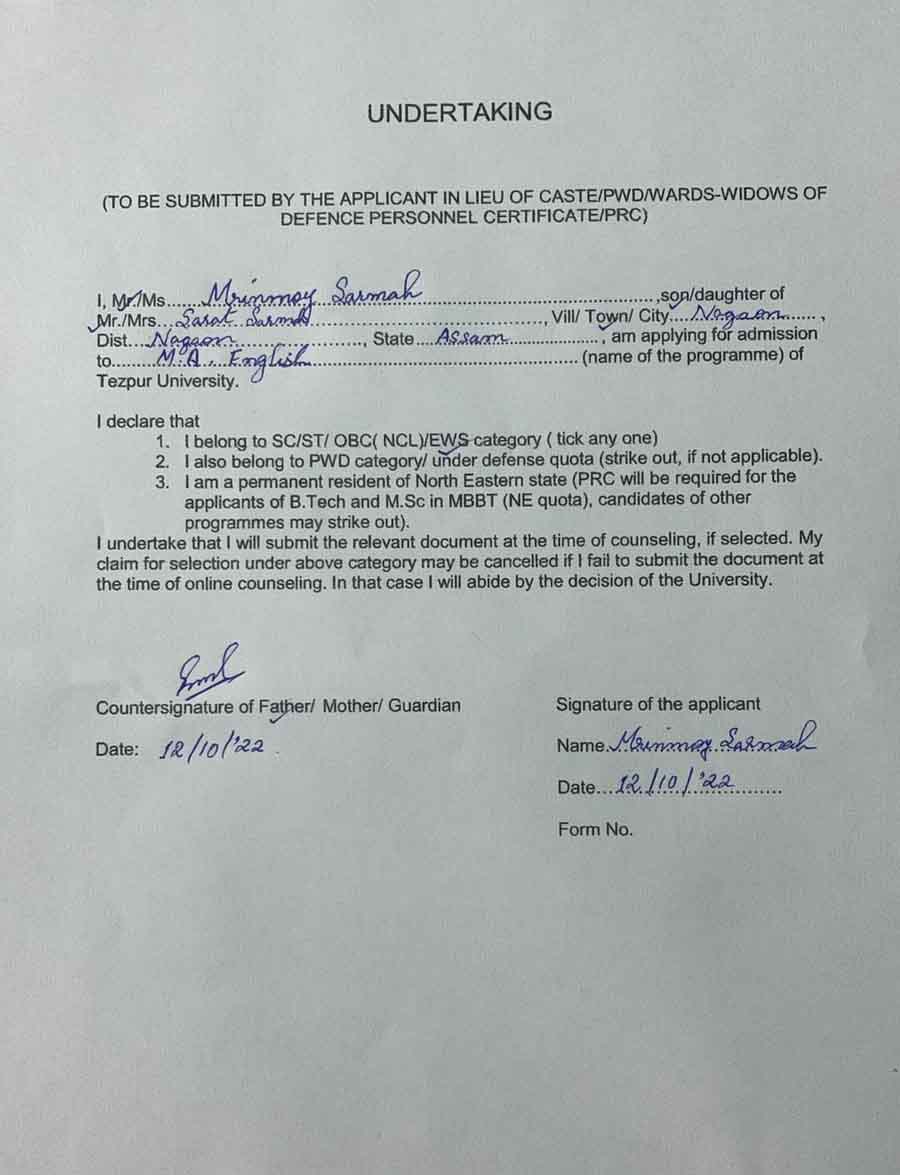 UNDERTAKING
(TO BE SUBMITTED BY THE APPLICANT IN LIEU OF CASTE/PWD/WARDS-WIDOWS OF
DEFENCE PERSONNEL CERTIFICATE/PRC)
I, Mr/Ms.......Mrinmoy Sarmah..................................................,son/daughter of
Mr./Mrs...Sarat Sarmah................................................., Vill/ Town/ City....Nagaon......,
Dist...Nagaon........................, State...Assam....................., am applying for admission
to.........M.A. English........................................................ (name of the programme) of
Tezpur University.
I declare that
1. I belong to SC/ST/ OBC( NCL)/EWS category ( tick any one)
2. I also belong to PWD category/ under defense quota (strike out, if not applicable).
3. I am a permanent resident of North Eastern state (PRC will be required for the
applicants of B.Tech and M.Sc in MBBT (NE quota), candidates of other
programmes may strike out).
I undertake that I will submit the relevant document at the time of counseling, if selected. My
claim for selection under above category may be cancelled if I fail to submit the document at
the time of online counseling. In that case I will abide by the decision of the University.
Countersignature of Father/ Mother/ Guardian
Date: 12/10/'22
Signature of the applicant
Name..Mrinmoy Sarmah
Date...12/10/'22...........
Form No.